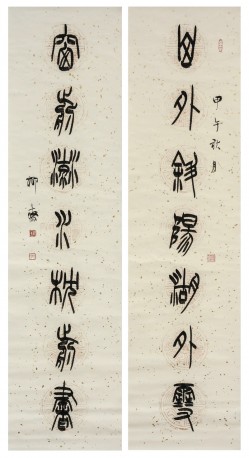 山外斜陽湖外雪
甲午秋月
窗前流水枕前書